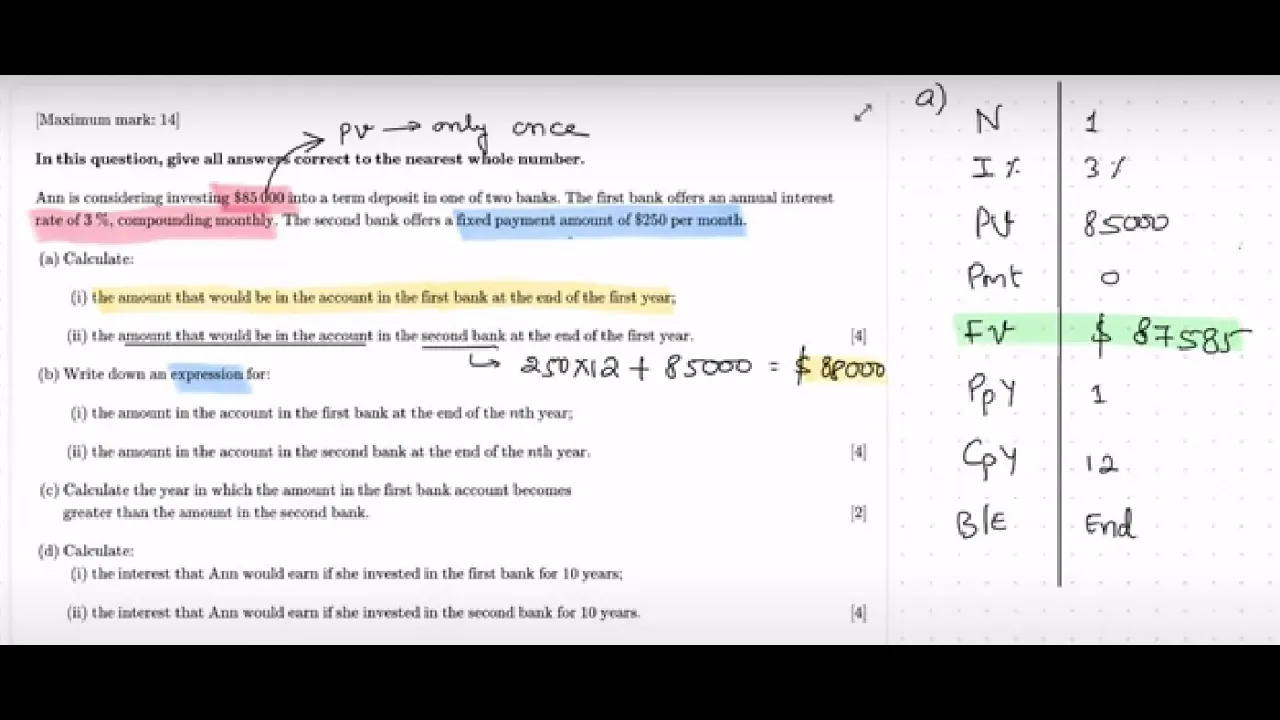 [Maximum mark: 14]
PV → only once
In this question, give all answers correct to the nearest whole number.
Ann is considering investing $85 000 into a term deposit in one of two banks. The first bank offers an annual interest
rate of 3 %, compounding monthly. The second bank offers a fixed payment amount of $250 per month.
(a) Calculate:
(i) the amount that would be in the account in the first bank at the end of the first year;
(ii) the amount that would be in the account in the second bank at the end of the first year. [4]
↳ 250×12 + 85000 = $ 88000
(b) Write down an expression for:
(i) the amount in the account in the first bank at the end of the nth year;
(ii) the amount in the account in the second bank at the end of the nth year. [4]
(c) Calculate the year in which the amount in the first bank account becomes
greater than the amount in the second bank. [2]
(d) Calculate:
(i) the interest that Ann would earn if she invested in the first bank for 10 years;
(ii) the interest that Ann would earn if she invested in the second bank for 10 years. [4]
a)
N 1
I % 3 %
PV 85000
Pmt 0
FV $ 87585
PpY 1
CpY 12
B/E End